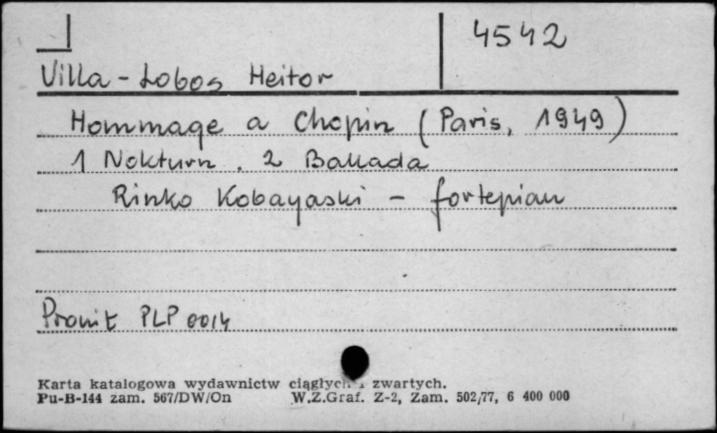 4542
Villa-Lobos Heitor
Hommage a Chopin (Paris, 1949)
1 Nokturn. 2 Ballada
Rinko Kobayaski - fortepian
Pronit PLP 0014
Karta katalogowa wydawnictw ciągłych i zwartych.
Pu-B-144 zam. 567/DW/On W.Z.Graf. Z-2, Zam. 502/77, 6 400 000